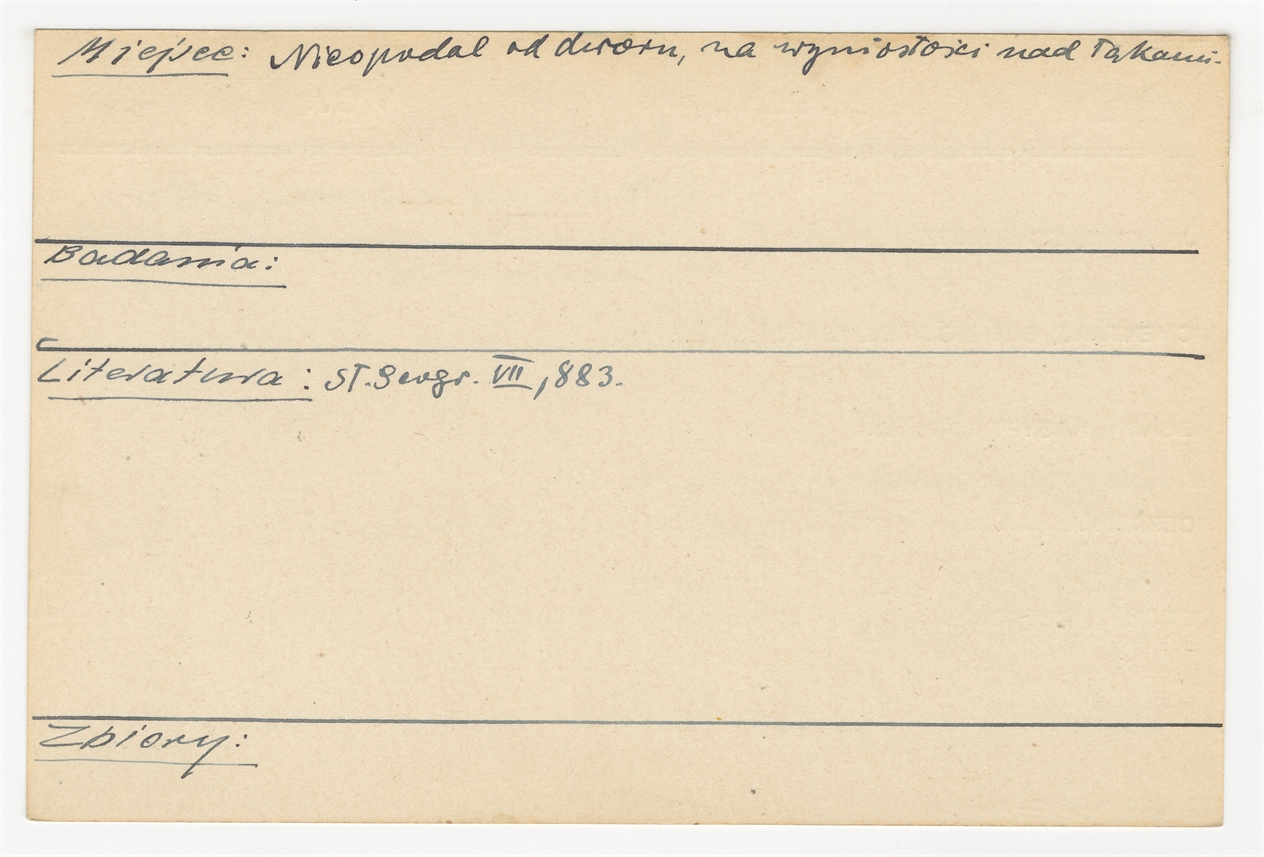 Miejsce: Nieopodal od dworu, na wyniosłości nad łąkami.
Badania:
Literatura: Sł. Geogr. VII, 883.
Zbiory: